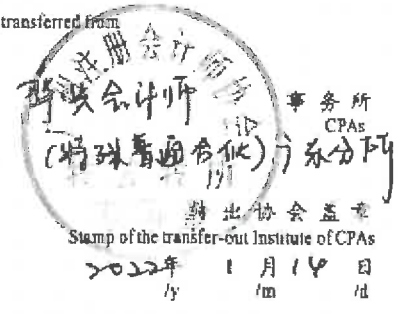 transferred from
会计师
事务所
CPAs
(特殊普通合伙)广东分所
转出协会盖章
Stamp of the transfer-out Institute of CPAs
2022年 1月14日
/y /m /d